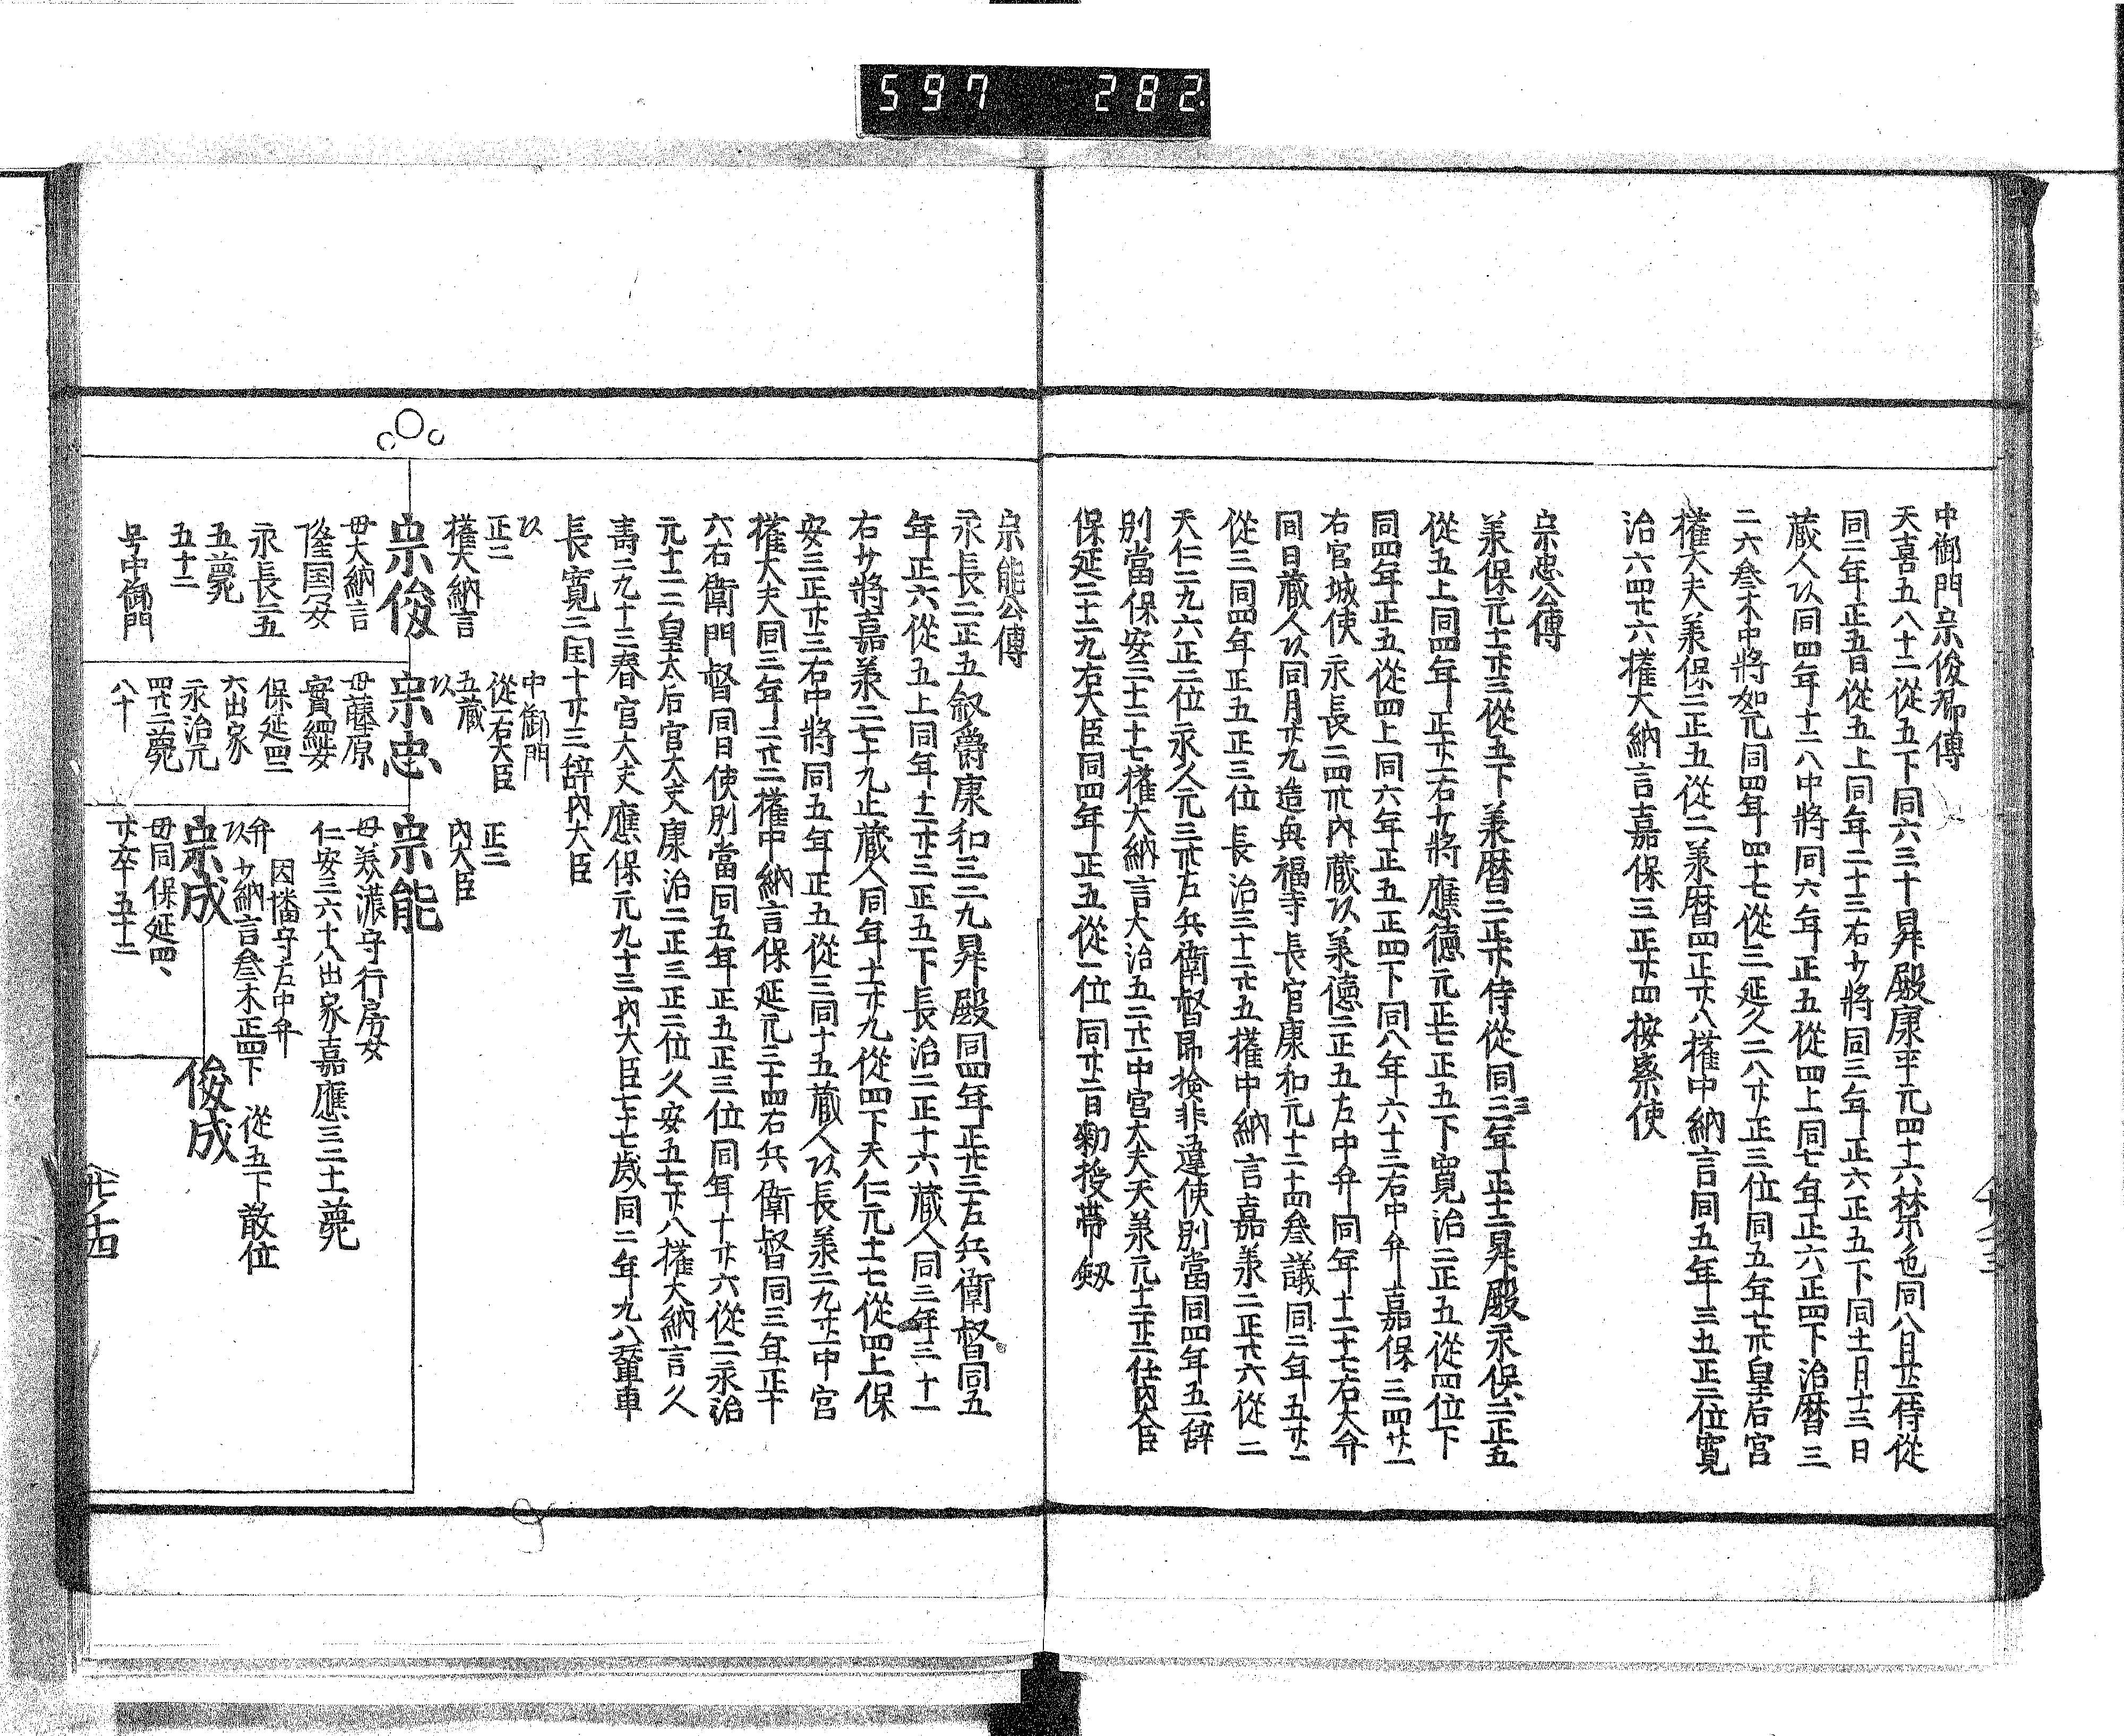 597 282
中御門宗俊卿傳
天喜五八十二從五下同六三十昇殿康平元四十六禁色同八月廿二侍從
同二年正五日從五上同年二十三右少將同三年正六正五下同十一月十三日
藏人以同四年十二八中將同六年正五從四上同七年正六正四下治曆三
二六叅木中將如元同四年四十七從三延久二八廿正三位同五年七卅皇后宮
權大夫羕保二正五從二羕曆四正廿八權中納言同五年三五正二位寬
治六四七六權大納言嘉保三正廿四按察使
宗忠公傳
羕保元十二廿三從五下羕曆二正廿侍從同三年正十二昇殿永保三正五
從五上同四年正廿一右少將應德元正七正五下寬治二正五從四位下
同四年正五從四上同六年正五正四下同八年六十三右中弁嘉保三四廿一
右宮城使永長二四卅內藏以羕德二正五左中弁同年十二十七右大弁
同日藏人以同月廿九造興福寺長官康和元十二十四叅議同二年五廿二
從三同四年正五正三位長治三十二廿五權中納言嘉羕二正廿六從二
天仁二九六正二位永久元三卅左兵衛督昂檢非違使別當同四年五二辞
別當保安三十二十七權大納言大治五二廿一中宮大夫天羕元十二廿二任內大臣
保延二十二九右大臣同四年正五從一位同廿二日勅授帶釼
宗能公傳
永長二正五叙爵康和三二九昇殿同四年正廿三左兵衛督同五
年正六從五上同年十二廿三正五下長治二正十六藏人同三年三十一
右少將嘉羕二七十九止藏人同年十二廿九從四下天仁元十一七從四上保
安三正廿三右中將同五年正五從三同十五藏人以長羕二九廿二中宮
權大夫同三年二廿二權中納言保延元三十四右兵衛督同三年正十
六右衛門督同日使別當同五年正五正三位同年十廿六從二永治
元十二二皇太后宮大夫康治二正三正二位久安五七廿八權大納言久
壽二九十三春宮大夫應保元九十三內大臣七十七歲同二年九八輦車
長寬二閏十廿三辞內大臣
以
正二
權大納言
宗俊
母大納言
隆国女
永長二五
五薨
五十二
号中御門
中御門
從一右大臣
五藏
以
宗忠
母藤原
實綱女
保延四二
六出家
永治元
四廿二薨
八十
正二
內大臣
宗能
母美濃守行房女
仁安三六十八出家嘉應三二十一薨
因播守左中弁
弁
以少納言叅木正四下
宗成
母同保延四、
廿卒五十二
從五下散位
俊成